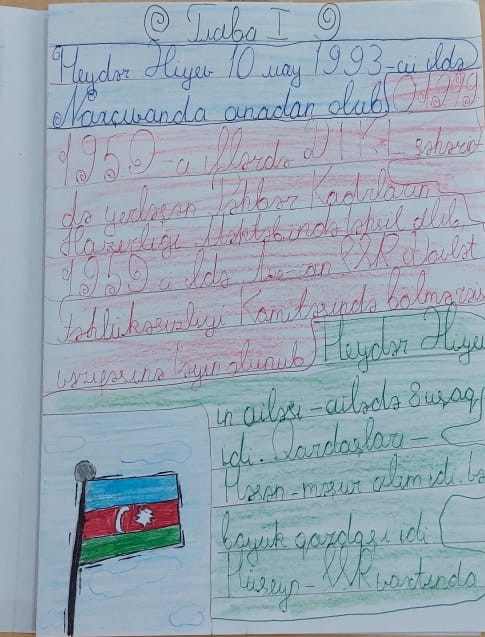 Глава I
Heydər Əliyev 10 may 1993-cü ildə
Naxcıvanda anadan olub. O 1949
1950-ci illərdə DTK L şəhərin
də yerləşən Rəhbər Kadrların
Hazırlığı Məktəbində təhsil alıb.
1950 ci ildə Azə-can SSR Dövlət
təhlükəsizliyi Komitəsində
təyin olunub. Heydər Əliyev
in ailəsi-ailədə 8 uşaq
idi. Qardaşları -
Həsən-məşur alim idi.
böyük qardaşı idi
Hüseyn- SSR vaxtında